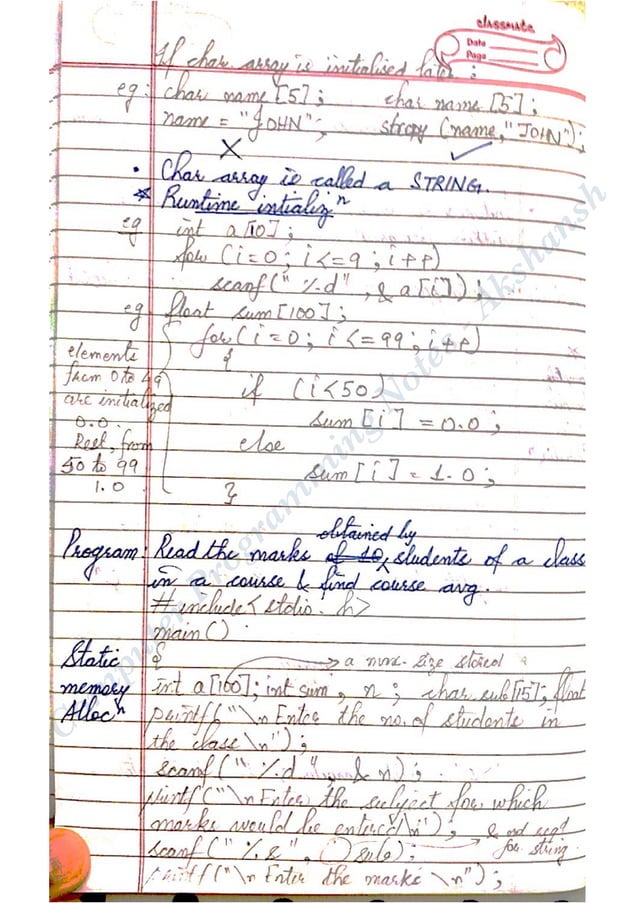 classmate
Date
Page
If char array is initialised later :
eg: char name [5]; char name [5];
name = "JOHN"; strcpy (name, "JOHN");
• Char array is called a STRING.
* Runtime intializⁿ
eg int a[10];
for (i=0; i<=9; i++)
scanf("%d", &a[i]);
eg float sum[100];
for(i=0; i<=99; i++)
{
if (i<50)
sum[i] = 0.0;
else
sum[i] = 1.0;
}
elements
from 0 to 49
are initialized
0.0.
Rest, from
50 to 99
1.0
obtained by
Program: Read the marks of 10 students of a class
in a course & find course avg.
#include<stdio.h>
main()
Static
memory
Allocⁿ
{ a max. size stored
int a[100]; int sum, n; char sub[15]; float
printf("\n Enter the no. of students in
the class \n");
scanf("%d", &n);
printf("\n Enter the subject for which
marks would be entered\n"); & not reqd
for string
scanf("%s", sub);
printf("\n Enter the marks \n");
Computer Programming Notes - Akshansh